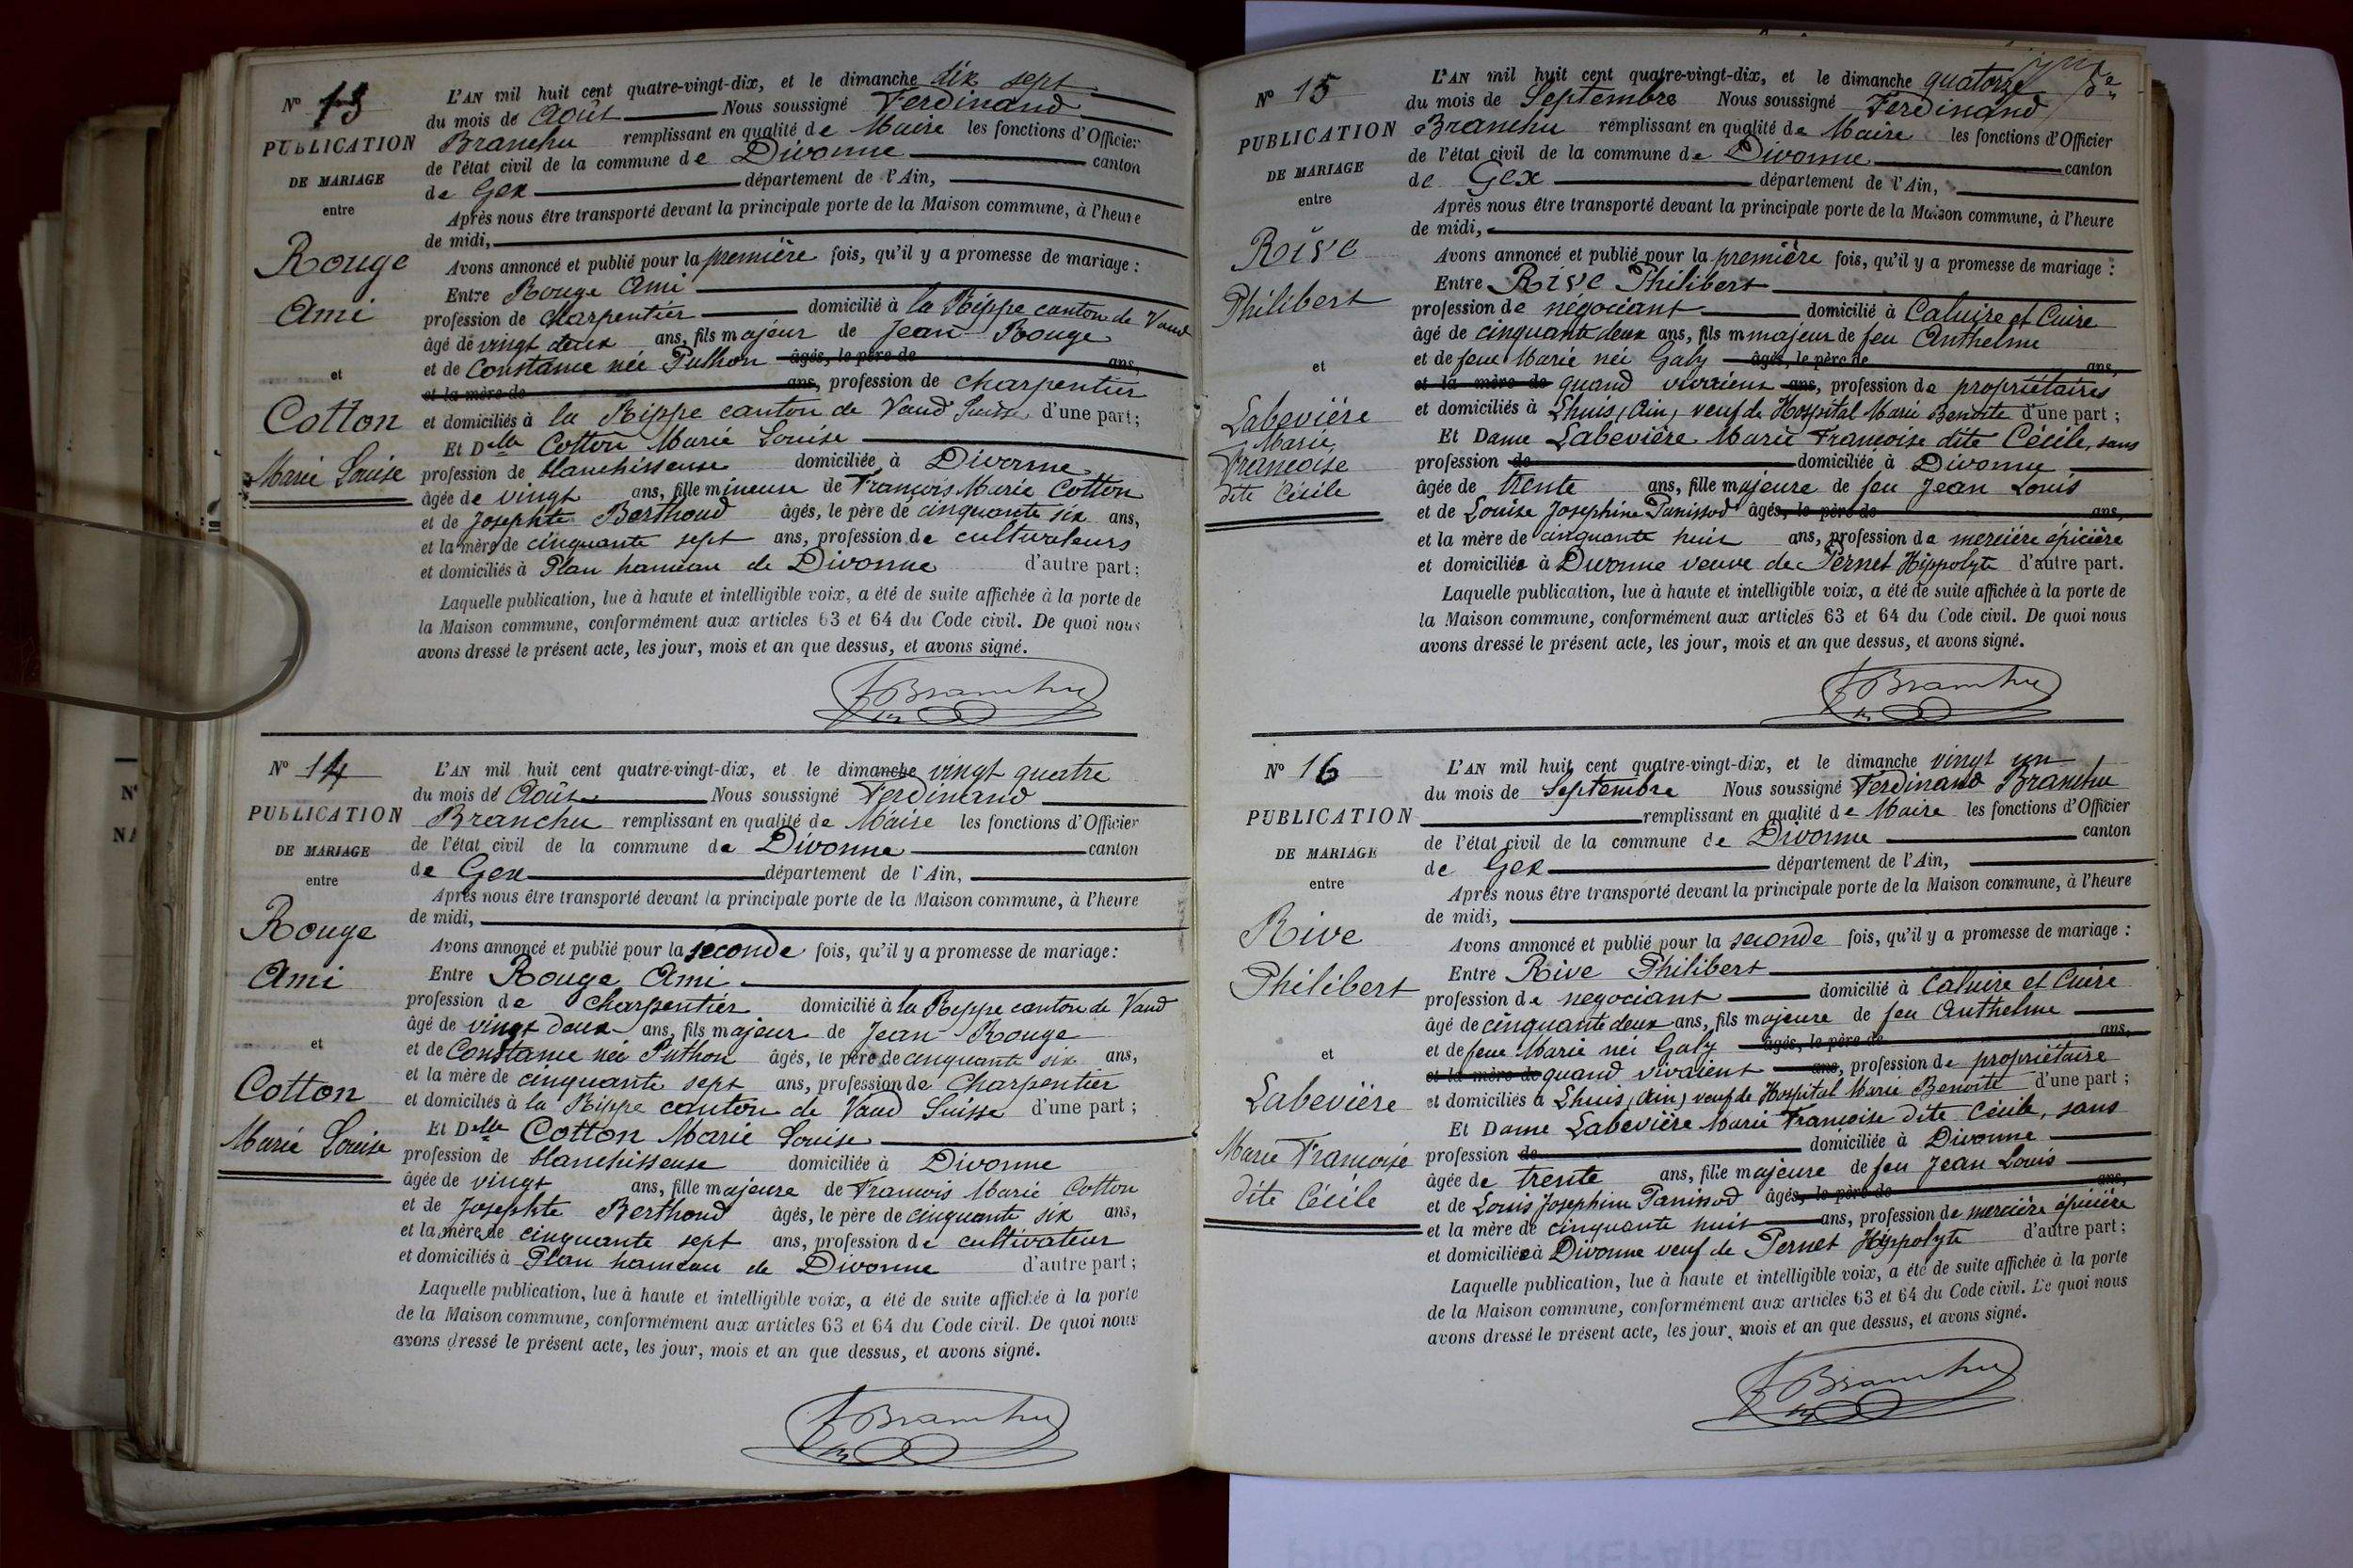 N° 13
PUBLICATION
DE MARIAGE
entre
Rouge
Ami
et
Cotton
Marie Louise
L'AN mil huit cent quatre-vingt-dix, et le dimanche dix sept
du mois de Août Nous soussigné Ferdinand
Branchu remplissant en qualité de Maire les fonctions d'Officier
de l'état civil de la commune de Divonne canton
de Gex département de l'Ain,
Après nous être transporté devant la principale porte de la Maison commune, à l'heure
de midi,
Avons annoncé et publié pour la première fois, qu'il y a promesse de mariage :
Entre Rouge Ami
profession de charpentier domicilié à la Rippe canton de Vaud
âgé de vingt deux ans, fils majeur de Jean Rouge
et de Constance née Puthon âgés, le père de ans,
et la mère de ans, profession de charpentier
et domiciliés à la Rippe canton de Vaud Suisse d'une part;
Et Delle Cotton Marie Louise
profession de blanchisseuse domiciliée à Divonne
âgée de vingt ans, fille mineure de François Marie Cotton
et de Josephte Berthoud âgés, le père de cinquante six ans,
et la mère de cinquante sept ans, profession de cultivateurs
et domiciliés à Plan hameau de Divonne d'autre part;
Laquelle publication, lue à haute et intelligible voix, a été de suite affichée à la porte de
la Maison commune, conformément aux articles 63 et 64 du Code civil. De quoi nous
avons dressé le présent acte, les jour, mois et an que dessus, et avons signé.
F Branchu
N° 14
PUBLICATION
DE MARIAGE
entre
Rouge
Ami
et
Cotton
Marie Louise
L'AN mil huit cent quatre-vingt-dix, et le dimanche vingt quatre
du mois de Août Nous soussigné Ferdinand
Branchu remplissant en qualité de Maire les fonctions d'Officier
de l'état civil de la commune de Divonne canton
de Gex département de l'Ain,
Après nous être transporté devant la principale porte de la Maison commune, à l'heure
de midi,
Avons annoncé et publié pour la seconde fois, qu'il y a promesse de mariage:
Entre Rouge Ami
profession de charpentier domicilié à la Rippe canton de Vaud
âgé de vingt deux ans, fils majeur de Jean Rouge
et de Constance née Puthon âgés, le père de cinquante six ans,
et la mère de cinquante sept ans, profession de Charpentier
et domiciliés à la Rippe canton de Vaud Suisse d'une part;
Et Delle Cotton Marie Louise
profession de blanchisseuse domiciliée à Divonne
âgée de vingt ans, fille majeure de François Marie Cotton
et de Josephte Berthoud âgés, le père de cinquante six ans,
et la mère de cinquante sept ans, profession de cultivateur
et domiciliés à Plan hameau de Divonne d'autre part;
Laquelle publication, lue à haute et intelligible voix, a été de suite affichée à la porte
de la Maison commune, conformément aux articles 63 et 64 du Code civil. De quoi nous
avons dressé le présent acte, les jour, mois et an que dessus, et avons signé.
F Branchu
N° 15
PUBLICATION
DE MARIAGE
entre
Rive
Philibert
et
Labevière
Marie
Françoise
dite Cécile
L'AN mil huit cent quatre-vingt-dix, et le dimanche quatorze
du mois de Septembre Nous soussigné Ferdinand
Branchu remplissant en qualité de Maire les fonctions d'Officier
de l'état civil de la commune de Divonne canton
de Gex département de l'Ain,
Après nous être transporté devant la principale porte de la Maison commune, à l'heure
de midi,
Avons annoncé et publié pour la première fois, qu'il y a promesse de mariage :
Entre Rive Philibert
profession de négociant domicilié à Caluire et Cuire
âgé de cinquante deux ans, fils majeur de feu Anthelme
et de feue Marie née Galy âgés, le père de ans,
et la mère de quand vivaient ans, profession de propriétaires
et domiciliés à Lhuis (Ain) veuf de Hospital Marie Benoite d'une part ;
Et Dame Labevière Marie Françoise dite Cécile, sans
profession de domiciliée à Divonne
âgée de trente ans, fille majeure de feu Jean Louis
et de Louise Josephine Panissod âgés, le père de ans,
et la mère de cinquante huit ans, profession de mercière épicière
et domiciliée à Divonne veuve de Pernet Hippolyte d'autre part.
Laquelle publication, lue à haute et intelligible voix, a été de suite affichée à la porte de
la Maison commune, conformément aux articles 63 et 64 du Code civil. De quoi nous
avons dressé le présent acte, les jour, mois et an que dessus, et avons signé.
F Branchu
N° 16
PUBLICATION
DE MARIAGE
entre
Rive
Philibert
et
Labevière
Marie Françoise
dite Cécile
L'AN mil huit cent quatre-vingt-dix, et le dimanche vingt un
du mois de Septembre Nous soussigné Ferdinand Branchu
remplissant en qualité de Maire les fonctions d'Officier
de l'état civil de la commune de Divonne canton
de Gex département de l'Ain,
Après nous être transporté devant la principale porte de la Maison commune, à l'heure
de midi,
Avons annoncé et publié pour la seconde fois, qu'il y a promesse de mariage :
Entre Rive Philibert
profession de négociant domicilié à Caluire et Cuire
âgé de cinquante deux ans, fils majeure de feu Anthelme
et de feue Marie née Galy âgés, le père de ans,
et la mère de quand vivaient ans, profession de propriétaire
et domiciliés à Lhuis (Ain) veuf de Hospital Marie Benoite d'une part ;
Et Dame Labevière Marie Françoise dite Cécile, sans
profession de domiciliée à Divonne
âgée de trente ans, fille majeure de feu Jean Louis
et de Louis Josephine Panissod âgés, le père de ans,
et la mère de cinquante huit ans, profession de mercière épicière
et domiciliée à Divonne veuf de Pernet Hippolyte d'autre part;
Laquelle publication, lue à haute et intelligible voix, a été de suite affichée à la porte
de la Maison commune, conformément aux articles 63 et 64 du Code civil. De quoi nous
avons dressé le présent acte, les jour, mois et an que dessus, et avons signé.
F Branchu